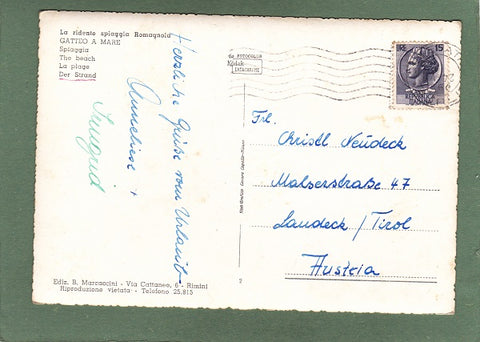 La ridente spiaggia Romagnola
GATTEO A MARE
Spiaggia
The beach
La plage
Der Strand
Herzliche Grüße vom Urlaub
Anneliese +
Irmgard
Kodak
EKTACHROME
15
Frl.
Christl Neudeck
Malserstraße 47
Landeck / Tirol
Austria
Ediz. B. Marcaccini - Via Cattaneo, 6 - Rimini
Riproduzione vietata - Telefono 25.813